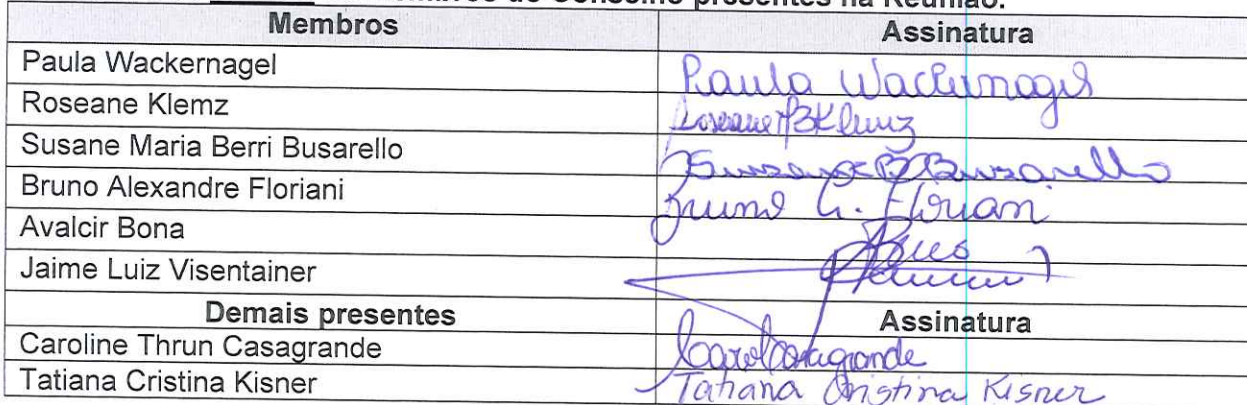 Membros do Conselho presentes na Reunião.
Membros Assinatura
Paula Wackernagel Paula Wackernagel
Roseane Klemz Roseane BKlemz
Susane Maria Berri Busarello Susane B Busarello
Bruno Alexandre Floriani Bruno A. Florian
Avalcir Bona
Jaime Luiz Visentainer
Demais presentes Assinatura
Caroline Thrun Casagrande Carol Casagrande
Tatiana Cristina Kisner Tatiana Cristina Kisner